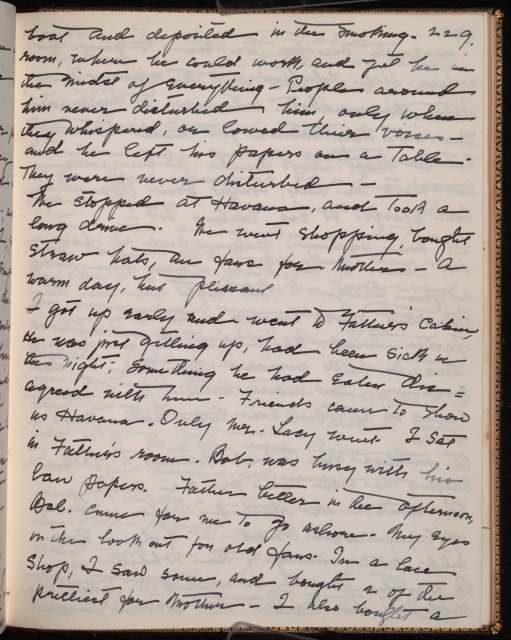 boat and deposited in the smoking- 229.
room, where he could work and yet be in
the midst of everything - People around
him never disturbed him, only when
they whispered, or lowed their voices -
and he left his papers on a table -
They were never disturbed -
We stopped at Havana, and took a
long drive. We went shopping, bought
straw hats, an fans for Mother - A
warm day, but pleasant
I got up early and went to Father's Cabin,
He was just getting up, had been sick in
the night; Something he had eaten dis=
agreed with him - Friends came to show
us Havana. Only Mr. Lacy went. I sat
in Father's room. Bob. was busy with his
law papers. Father better in the afternoon,
Bob. came for me to go ashore. My eyes
on the look out for old fans. In a lace
Shop, I saw some, and bought 2 of the
prettiest for Mother - I also bought a